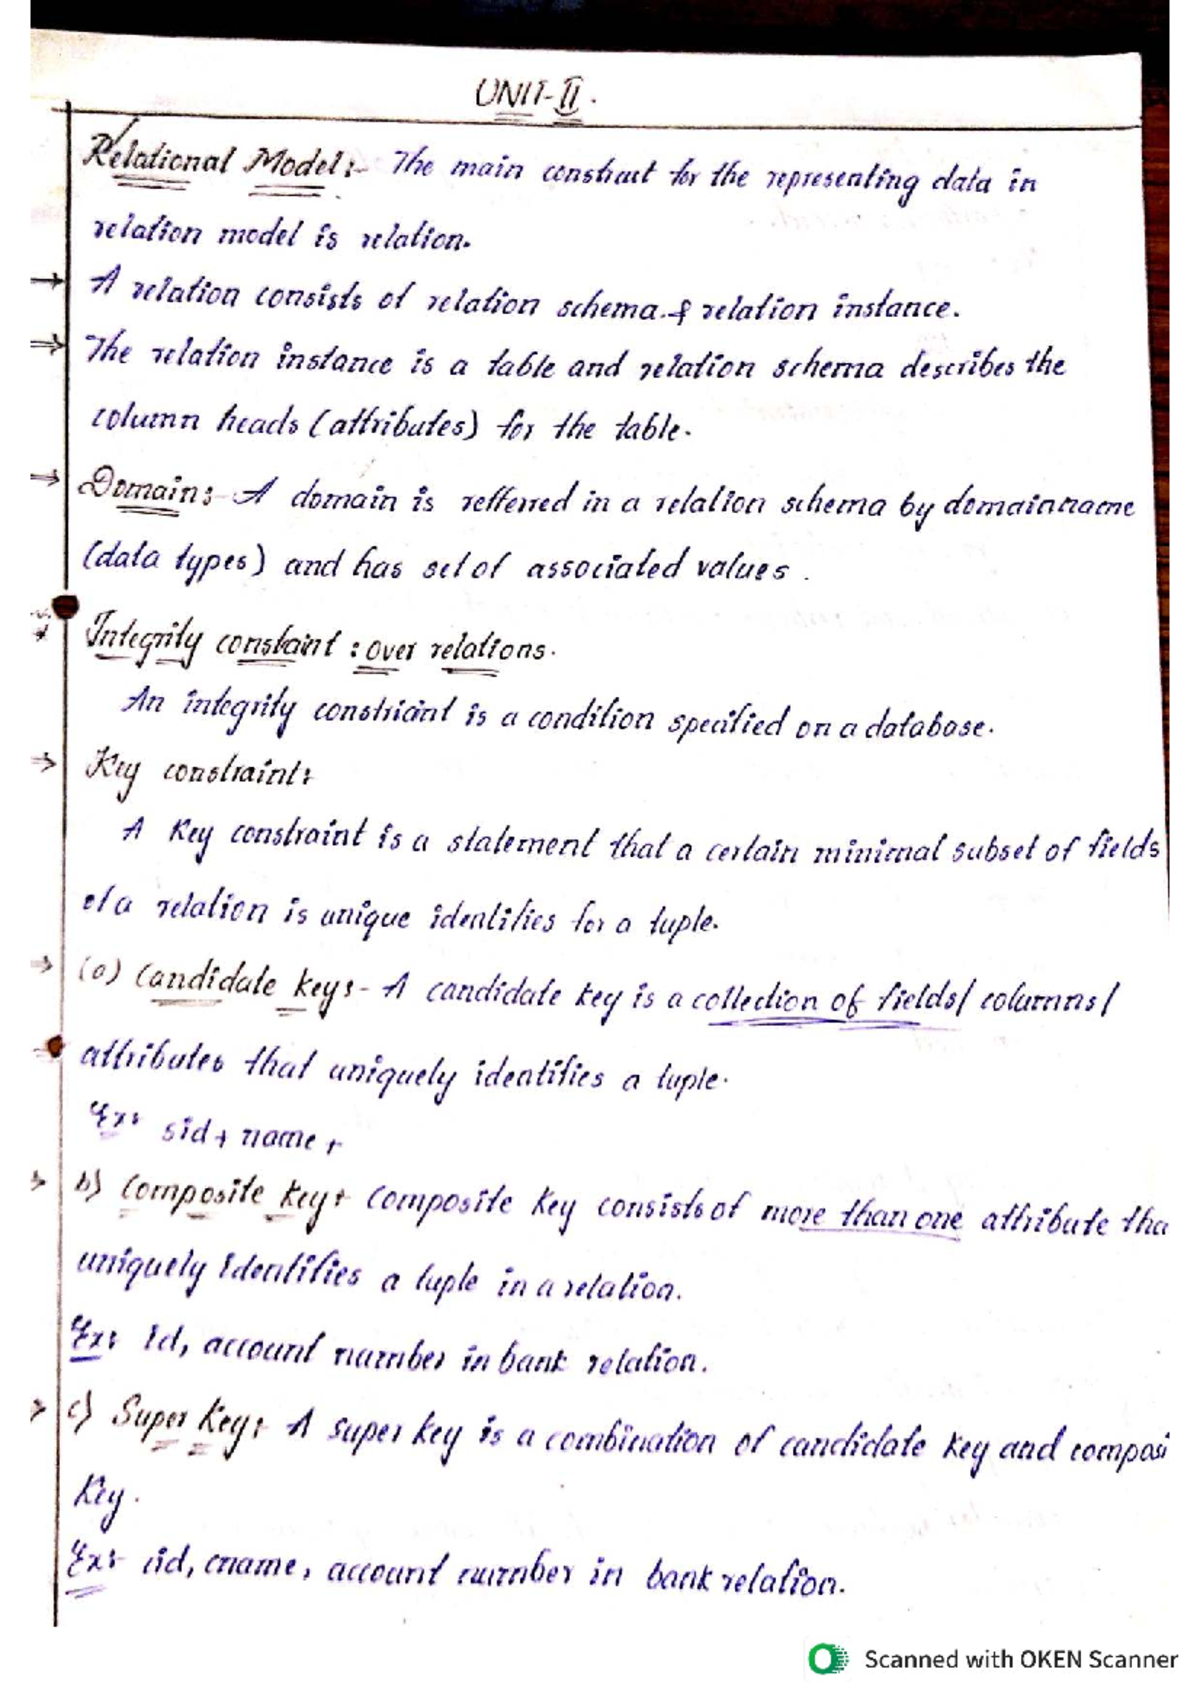 UNIT-II.
Relational Model:- The main construct for the representing data in
relation model is relation.
→ A relation consists of relation schema & relation instance.
⇒ The relation instance is a table and relation schema describes the
column heads (attributes) for the table.
⇒ Domain:- A domain is refferred in a relation schema by domain name
(data types) and has set of associated values.
Integrity constaint : over relations.
An integrity constriant is a condition specified on a database.
⇒ Key constraint:
A Key constraint is a statement that a certain minimal subset of fields
of a relation is unique identifies for a tuple.
⇒ (a) Candidate key:- A candidate key is a collection of fields/ columns/
attributes that uniquely identifies a tuple.
Ex: sid, name,
b) Composite key: Composite key consists of more than one attribute tha
uniquely identifies a tuple in a relation.
Ex: Id, account number in bank relation.
c) Super Key: A super key is a combination of candidate key and composi
Key.
Ex:- cid, cname, account number in bank relation.
Scanned with OKEN Scanner